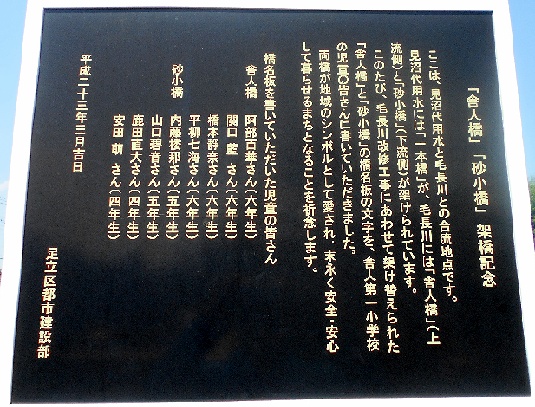 「舎人橋」「砂小橋」 架橋記念
ここは、見沼代用水と毛長川との合流地点です。
見沼代用水には「一本橋」が、毛長川には「舎人橋」(上
流側)と「砂小橋」(下流側)が架けられています。
このたび、毛長川改修工事にあわせて架け替えられた
「舎人橋」と「砂小橋」の橋名板の文字を、舎人第一小学校
の児童の皆さんに書いていただきました。
両橋が地域のシンボルとして愛され、末永く安全・安心
して暮らせるまちとなることを祈念します。
橋名板を書いていただいた児童の皆さん
舎人橋 阿部百華さん(六年生)
関口 藍 さん(六年生)
橋本静奈さん(六年生)
平柳七海さん(六年生)
砂小橋 内藤 さん(五年生)
山口碧音さん(五年生)
鹿田直大さん(四年生)
安田 萌 さん(四年生)
平成二十三年三月吉日
足立区都市建設部